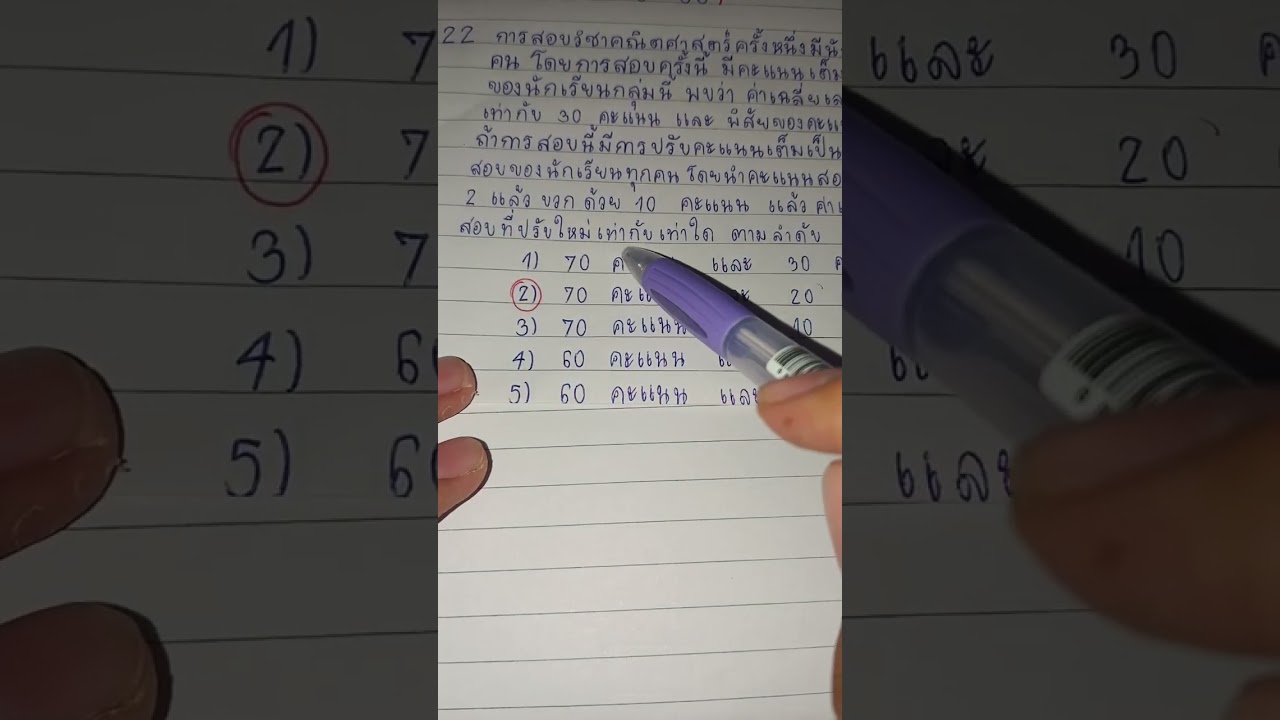 22 การสอบวิชาคณิตศาสตร์ครั้งหนึ่งมี
คน โดยการสอบครั้งนี้ มีคะแนนเต็ม
ของนักเรียนกลุ่มนี้ พบว่า ค่าเฉลี่ย
เท่ากับ 30 คะแนน และ พิสัยของ
ถ้าการสอบนี้มีการปรับคะแนนเต็มเป็น
สอบของนักเรียนทุกคน โดยนำคะแนน
2 แล้ว บวก ด้วย 10 คะแนน แล้ว
สอบที่ปรับใหม่ เท่ากับ เท่าใด ตาม ลำดับ
1) 70 และ 30
2) 70 20
3) 70 คะแนน 10
4) 60 คะแนน
5) 60 คะแนน และ